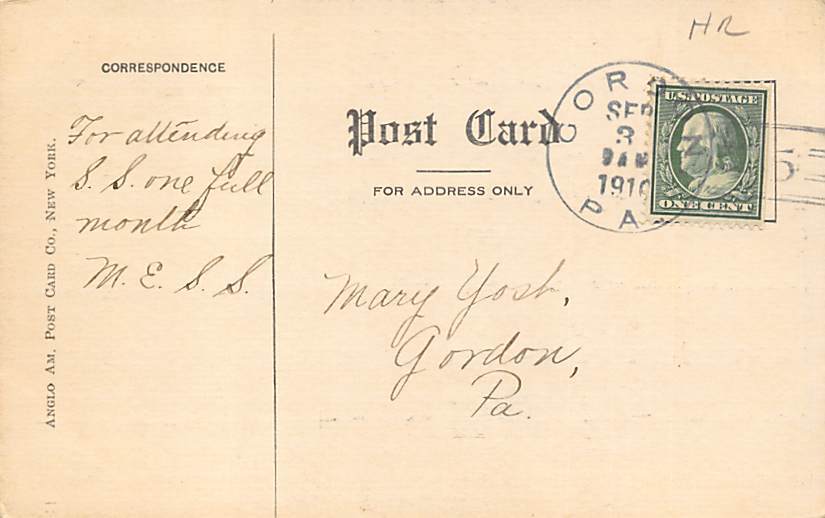 HR
CORRESPONDENCE
For attending
S. S. one full
month
M. E. S. S.
ANGLO AM. POST CARD CO., NEW YORK.
Post Card
FOR ADDRESS ONLY
GORDON
SEP
3
9 AM
1910
PA.
U.S. POSTAGE
ONE CENT
Mary Yost,
Gordon,
Pa.